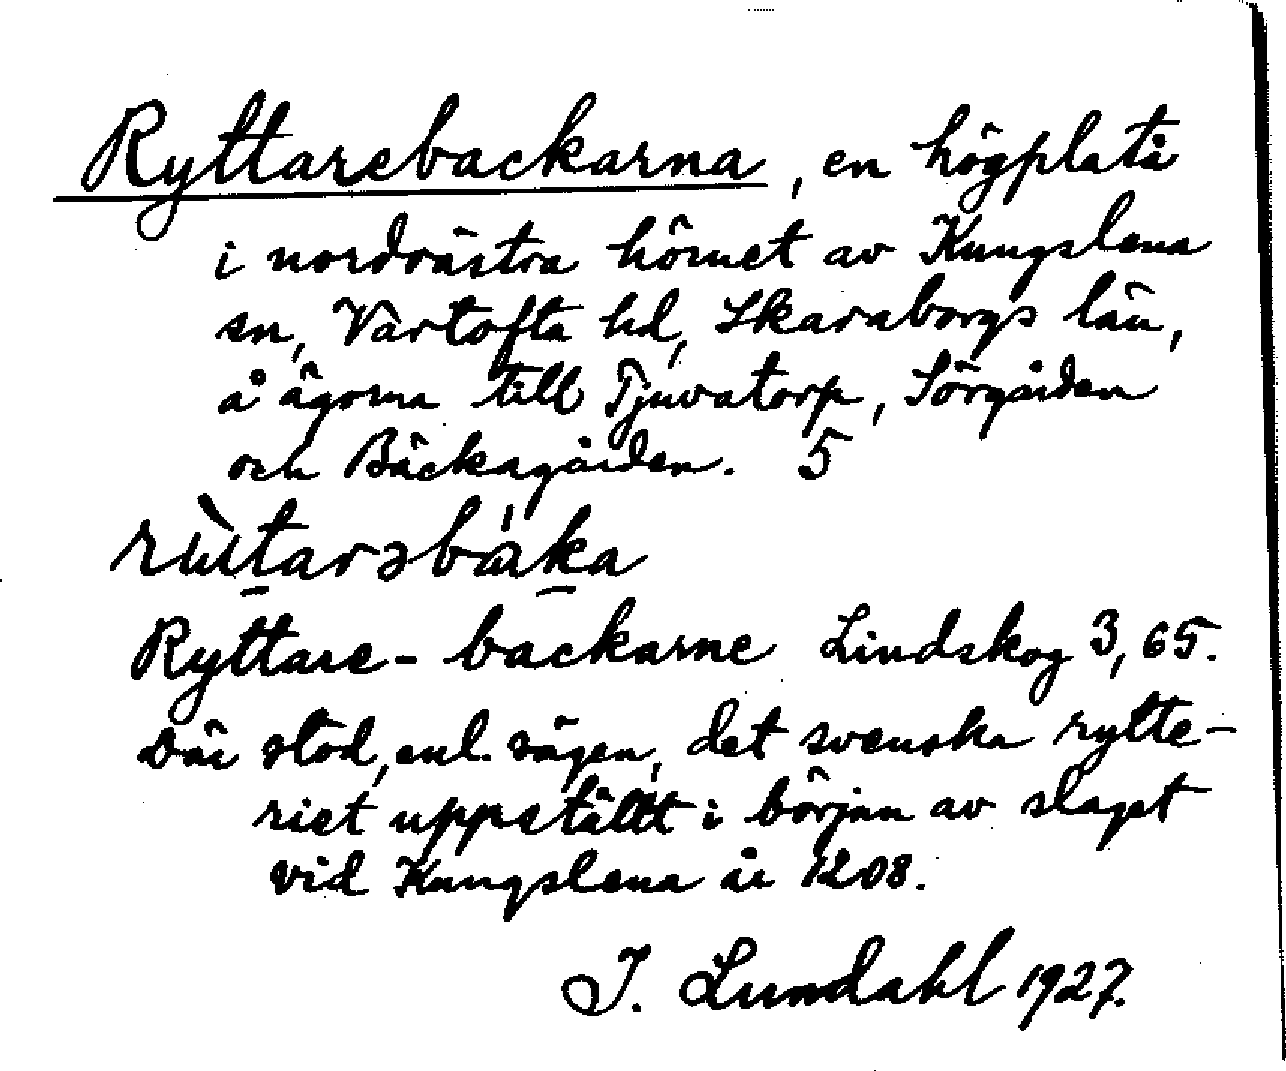 Ryttarebackarna, en högplatå
i nordvästra hörnet av Kungslena
sn, Vartofta hd, Skaraborgs län,
å ägorna till Tjuvatorp, Sörgården
och Bäckagården. 5
Ryttare-backarne Lindskog 3,65.
Där stod, enl. sägen, det svenska rytte-
riet uppställt i början av slaget
vid Kungslena år 1208.
I. Lundahl 1927.